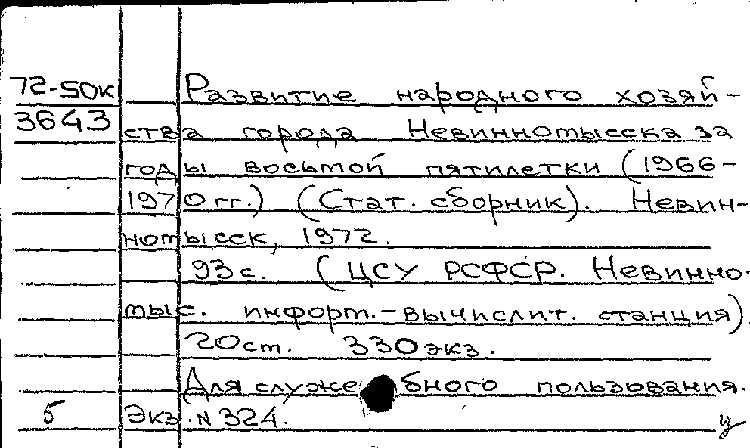 72-50к Развитие народного хозяй-
3643 ства города Невинномысска за
годы восьмой пятилетки (1966-
1970 гг.) (Стат. сборник). Невин-
номысск, 1972.
93 с. (ЦСУ РСФСР. Невинно-
мыс. информ.-вычислит. станция).
20 см. 330 экз.
Для служебного пользования.
5 Экз. N 324.